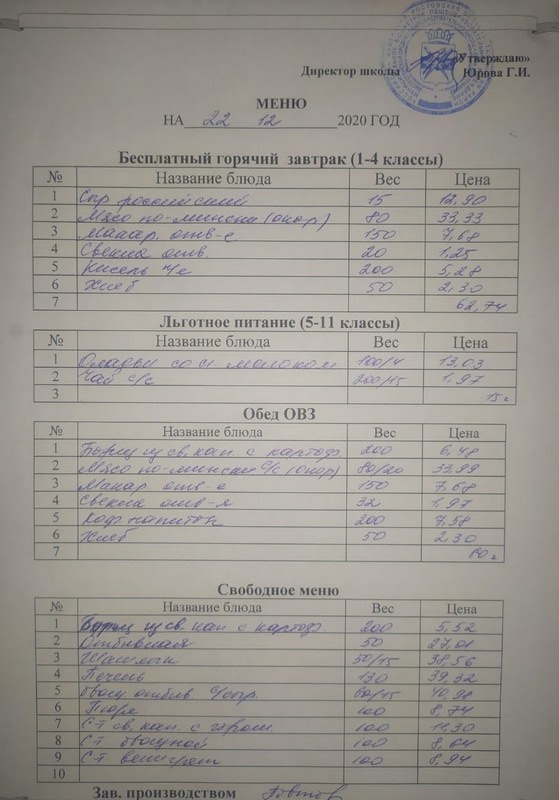 «Утверждаю»
Директор школы Юрова Г.И.
МЕНЮ
НА 22 12 2020 ГОД
Бесплатный горячий завтрак (1-4 классы)
№ Название блюда Вес Цена
1 Сыр российский 15 12,90
2 Мясо по-мински (окор) 80 33,33
3 Макар. отв-е 150 7,68
4 Свекла отв. 20 1,25
5 Кисель 200 5,28
6 Хлеб 50 2,30
7 62,74
Льготное питание (5-11 классы)
№ Название блюда Вес Цена
1 Оладьи со сг. молоком 100/4 13,03
2 Чай с/с 200/15 1,97
3 15
Обед ОВЗ
№ Название блюда Вес Цена
1 Борщ из св. кап. с картоф. 200 6,48
2 Мясо по-мински с/с (окор) 80/20 33,99
3 Макар. отв-е 150 7,68
4 Свекла отв-я 32 1,97
5 Коф. напиток 200 7,58
6 Хлеб 50 2,30
7 60
Свободное меню
№ Название блюда Вес Цена
1 Борщ из св. кап с картоф. 200 5,52
2 Отбивная 50 27,01
3 50/15 38,56
4 Печень 130 39,32
5 отбив. 60/15 40,98
6 Пюре 100 8,74
7 С-т св. кап. с горош. 100 11,30
8 С-т 100 8,64
9 С-т 100 8,94
10
Зав. производством